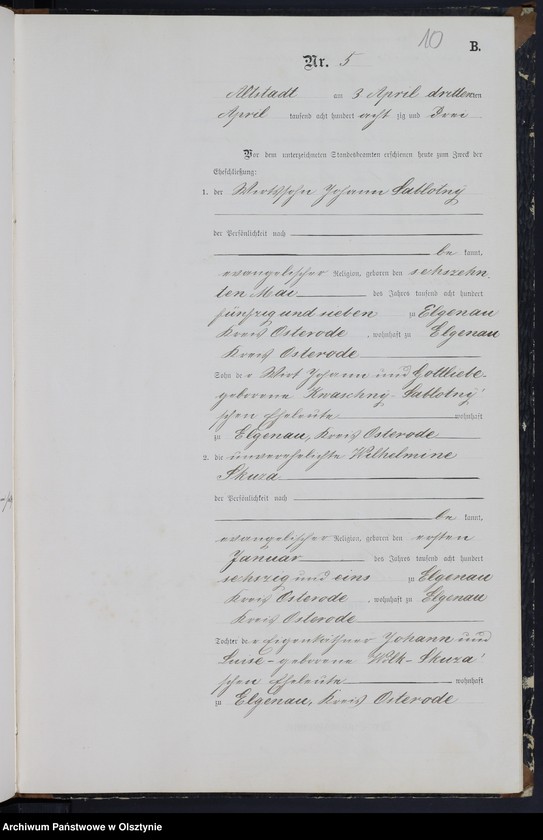 10
B.
Nr. 5
Altstadt am 3 April dritten ten
April tausend acht hundert acht zig und drei
Vor dem unterzeichneten Standesbeamten erschienen heute zum Zweck der
Eheschließung:
1. der Wirthssohn Johann Sablotny
der Persönlichkeit nach
be kannt,
evangelischer Religion, geboren den sechszehn
ten Mai des Jahres tausend acht hundert
fünfzig und sieben zu Elgenau
Kreis Osterode, wohnhaft zu Elgenau
Kreis Osterode
Sohn der Wirt Johann und Gottliebe
geborene Kwaschny-Sablotny'
schen Eheleute wohnhaft
zu Elgenau, Kreis Osterode
2. die unverehelichte Wilhelmine
Skuza
der Persönlichkeit nach
be kannt,
evangelischer Religion, geboren den ersten
Januar des Jahres tausend acht hundert
sechszig und eins zu Elgenau
Kreis Osterode, wohnhaft zu Elgenau
Kreis Osterode
Tochter der Eigenkäthner Johann und
geborene Wolk-Skuza'
schen Eheleute wohnhaft
zu Elgenau, Kreis Osterode
Archiwum Państwowe w Olsztynie